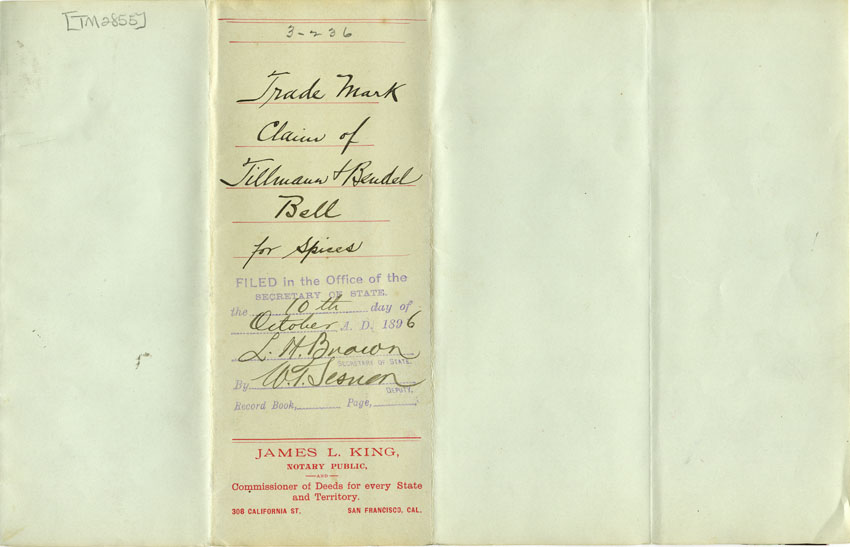 [TM2855]
3-236
Trade Mark
Claim of
Tillmann & Bendel
Bell
for Spices
FILED in the Office of the
SECRETARY OF STATE.
the 10th day of
October A. D. 1896
L. H. Brown
SECRETARY OF STATE.
By W. T. Sesnon
DEPUTY.
Record Book, Page,
JAMES L. KING,
NOTARY PUBLIC,
—AND—
Commissioner of Deeds for every State
and Territory.
308 CALIFORNIA ST. SAN FRANCISCO, CAL.